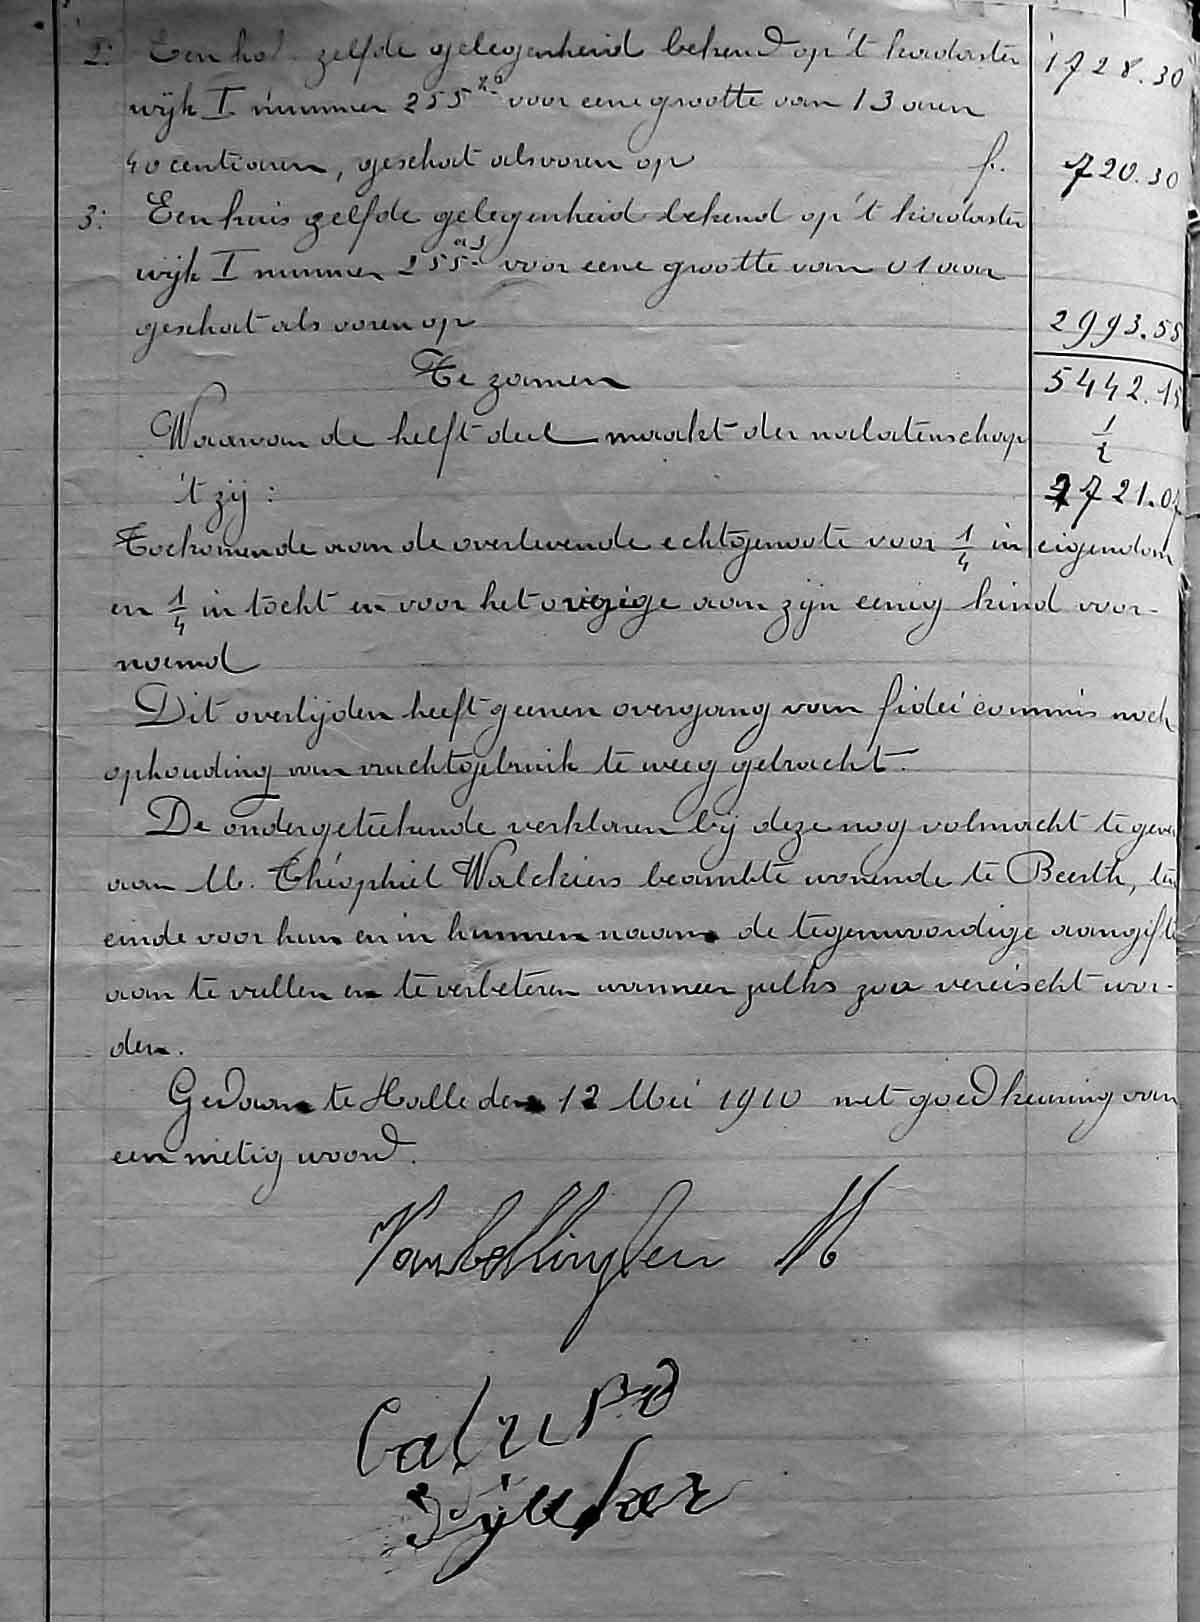 2: Een hof zelfde gelegenheid bekend op 't kadaster 1728.30
wijk I nummer 255 voor eene grootte van 13 aren
40 centiaren, geschat als voren op f. 720.30
3: Een huis zelfde gelegenheid bekend op 't kadaster
wijk I nummer 255 voor eene grootte van 01 aar
geschat als voren op 2993.55
Te zamen 5442.15
Waarvan de helft deel maakt der nalatenschap 1/2
't zij : 2721.07
Toekomende aan de overlevende echtgenoote voor 1/4 in eigendom
en 1/4 in tocht en voor het overige aan zijn eenig kind voor-
noemd
Dit overlijden heeft geenen overgang van fideï commis noch
ophouding van vruchtgebruik te weeg gebracht.
De ondergeteekende verklaren bij deze nog volmacht te geven
aan M. Théophiel Walckiers beambte wonende te Beerth, ten
einde voor hun en in hunnen naam de tegenwoordige aangifte
aan te vullen en te verbeteren wanneer zulks zou vereischt wor-
den.
Gedaan te Halle den 12 Mei 1910 met goedkeuring van
een nietig woord.
Vanbellinghen M